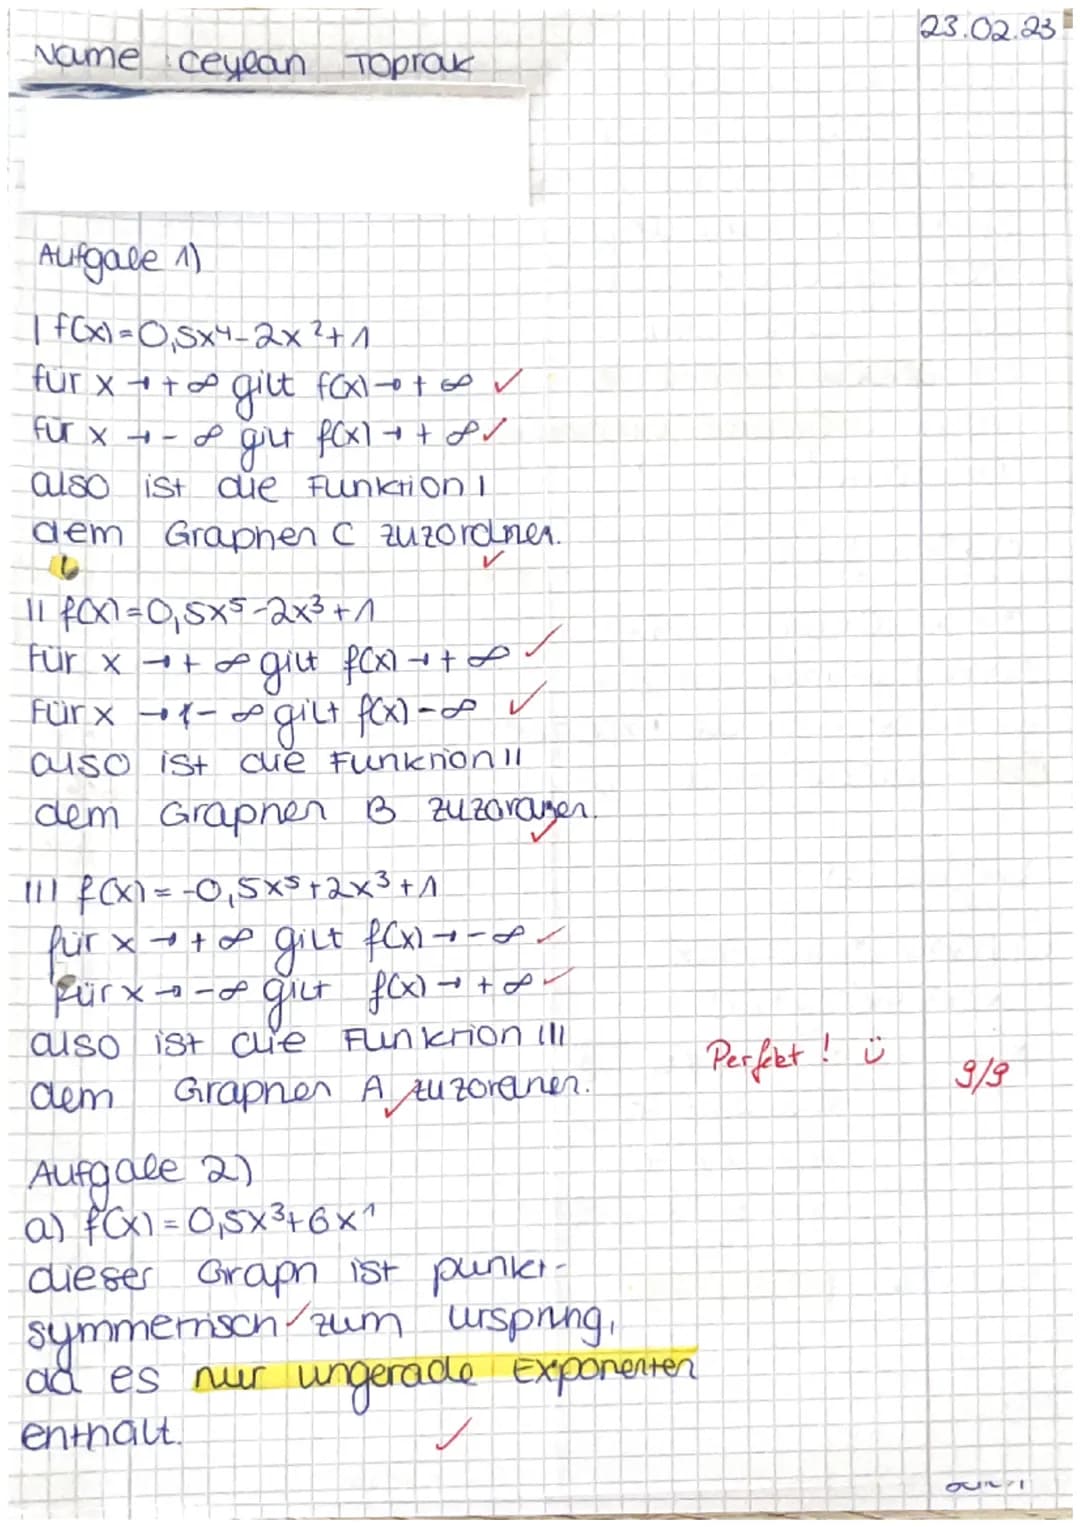 23.02.23
Name : Ceylan Toprak
Aufgabe 1)
I f(x)=0,5x⁴-2x²+1
für x → +∞ gilt f(x) → +∞ ✓
Für x → -∞ gilt f(x) → +∞ ✓
also ist die Funktion I
dem Graphen C zuzordnen.
✓
II f(x)=0,5x⁵-2x³+1
Für x → +∞ gilt f(x) → +∞ ✓
Für x → -∞ gilt f(x) -∞ ✓
also ist die Funktion II
dem Graphen B zuzordnen.
✓
III f(x)=-0,5x⁵+2x³+1
für x → +∞ gilt f(x) → -∞ ✓
Für x → -∞ gilt f(x) → +∞ ✓
also ist die Funktion III
dem Graphen A zuzordnen. ✓
Perfekt! ü 9/9
Aufgabe 2)
a) f(x)=0,5x³+6x¹
dieser Graph ist punkt-
symmetrisch ✓ zum Ursprung,
da es nur ungerade Exponenten
enthält. ✓